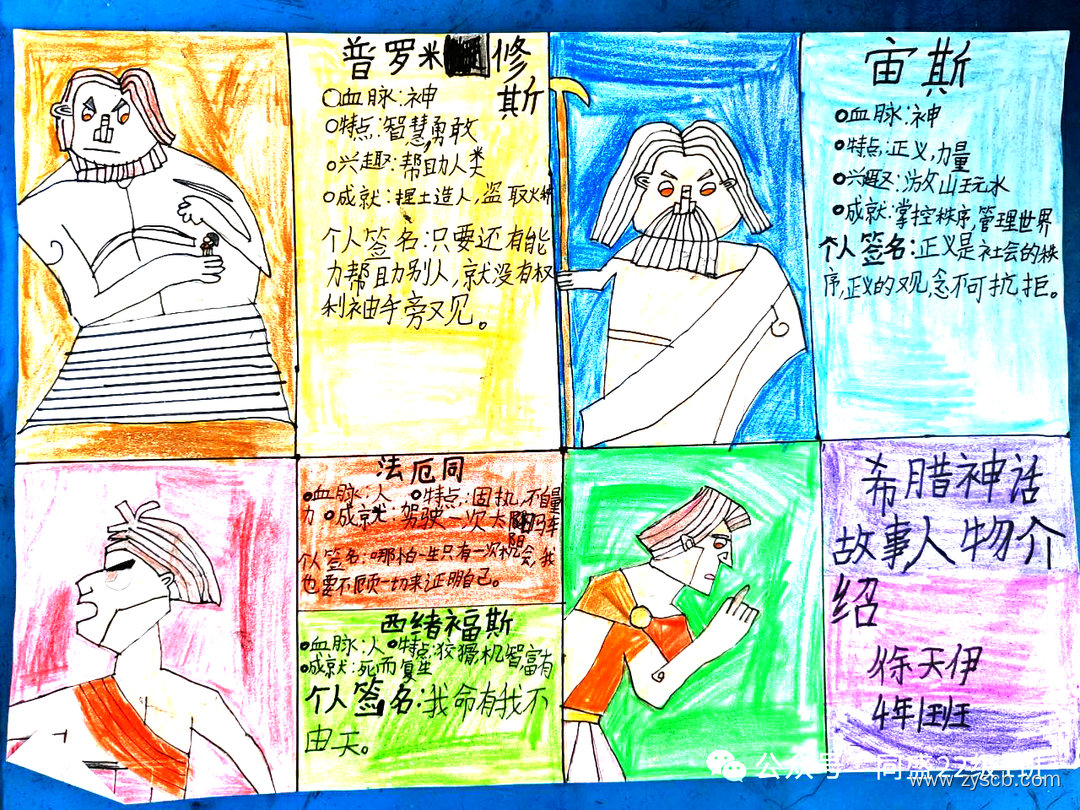 普罗米修
斯
血脉:神
特点:智慧,勇敢
兴趣:帮助人类
成就:捏土造人,盗取火种
个人签名:只要还有能
力帮助别人,就没有权
利袖手旁观。
宙斯
血脉:神
特点:正义,力量
兴趣:游山玩水
成就:掌控秩序,管理世界
个人签名:正义是社会的秩
序,正义的观念不可抗拒。
法厄同
血脉:人 特点:固执,不自量
力 成就:驾驶一次太阳马车
个人签名:哪怕一生只有一次机会,我
也要不顾一切来证明自己。
西绪福斯
血脉:人 特点:狡猾机智富有
成就:死而复生
个人签名:我命有我不
由天。
希腊神话
故事人物介
绍
徐天伊
4年1班
公众号
www.zyscb.com